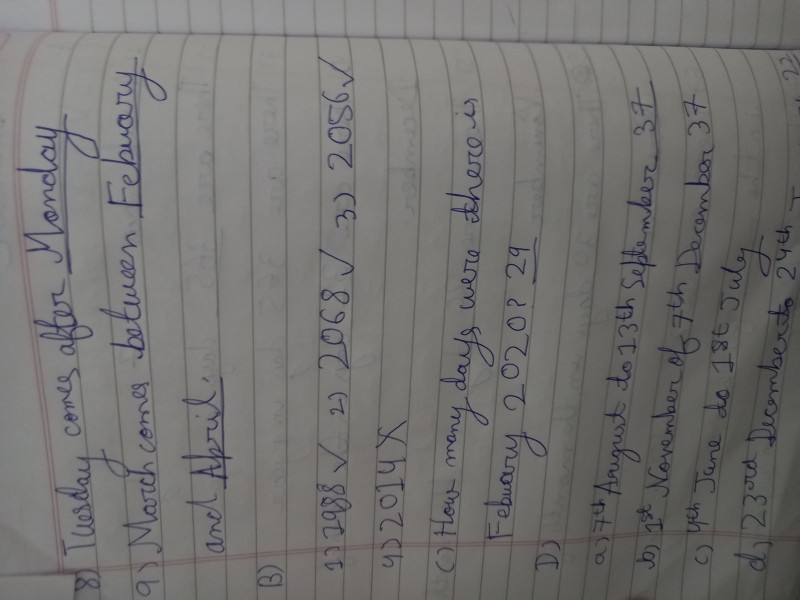 8) Tuesday comes after Monday
9) March comes between Febuary
and April.
B)
1) 1988 ✓ 2) 2068 ✓ 3) 2056 ✓
4) 2014 X
C) How many days were there is
Febuary 2020? 29
D)
a) 7th August to 13th September 37
b) 1st November of 7th December 37
c) 4th June to 1st July
d) 23rd December to 24th